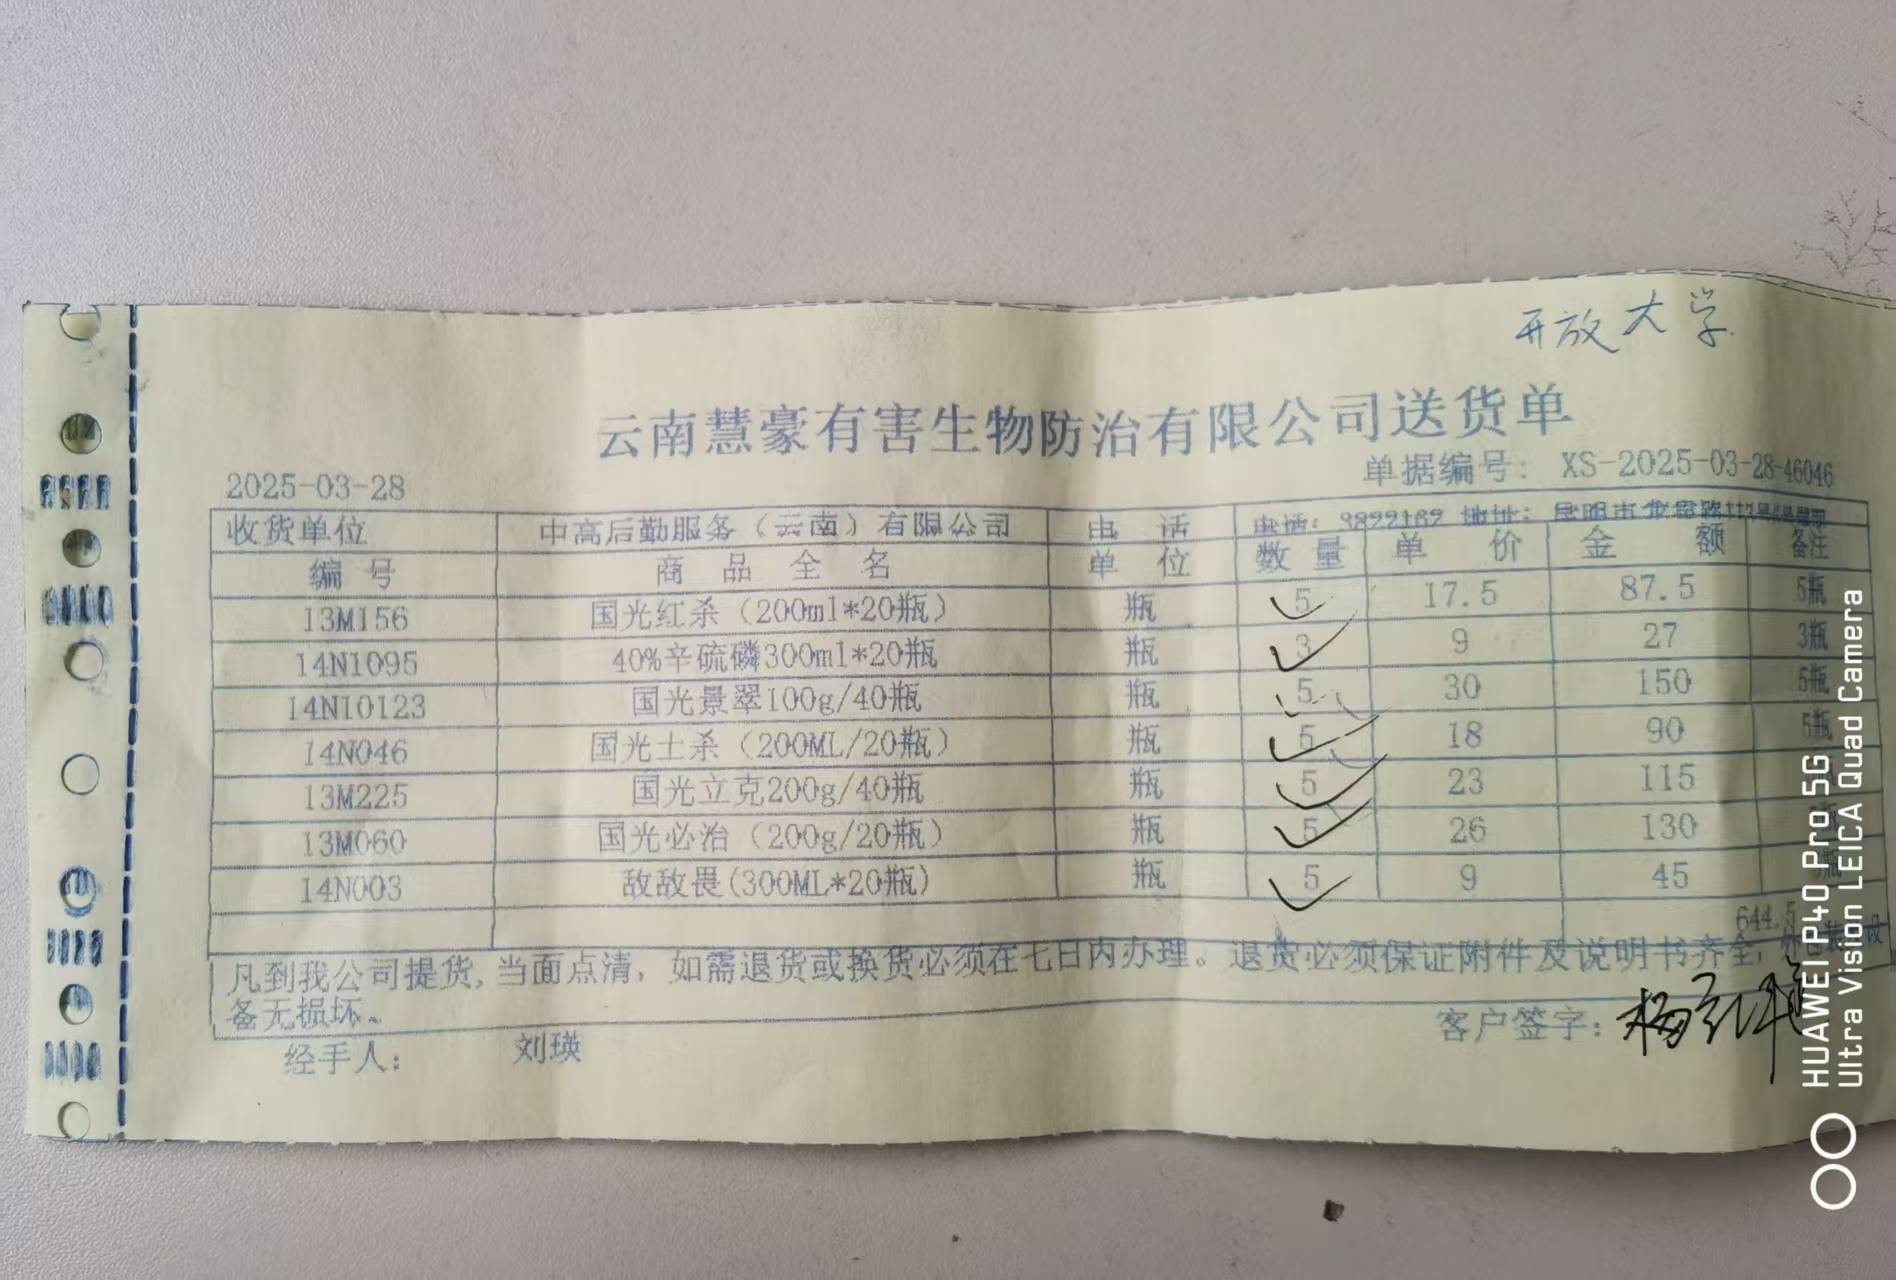 开放大学
云南慧豪有害生物防治有限公司送货单
2025-03-28 单据编号: XS-2025-03-28-46046
收货单位 中高后勤服务（云南）有限公司 电 话 电话: 9892169 地址: 昆明市
编 号 商 品 全 名 单 位 数 量 单 价 金 额 备注
13M156 国光红杀（200ml*20瓶） 瓶 5 17.5 87.5 5瓶
14N1095 40%辛硫磷300ml*20瓶 瓶 3 9 27 3瓶
14N10123 国光景翠100g/40瓶 瓶 5 30 150 5瓶
14N046 国光土杀（200ML/20瓶） 瓶 5 18 90 5瓶
13M225 国光立克200g/40瓶 瓶 5 23 115
13M060 国光必治（200g/20瓶） 瓶 5 26 130
14N003 敌敌畏(300ML*20瓶) 瓶 5 9 45
644.5
凡到我公司提货, 当面点清, 如需退货或换货必须在七日内办理。退货必须保证附件及说明书齐全, 设
备无损坏。
经手人: 刘瑛 客户签字:
HUAWEI P40 Pro 5G
Ultra Vision LEICA Quad Camera